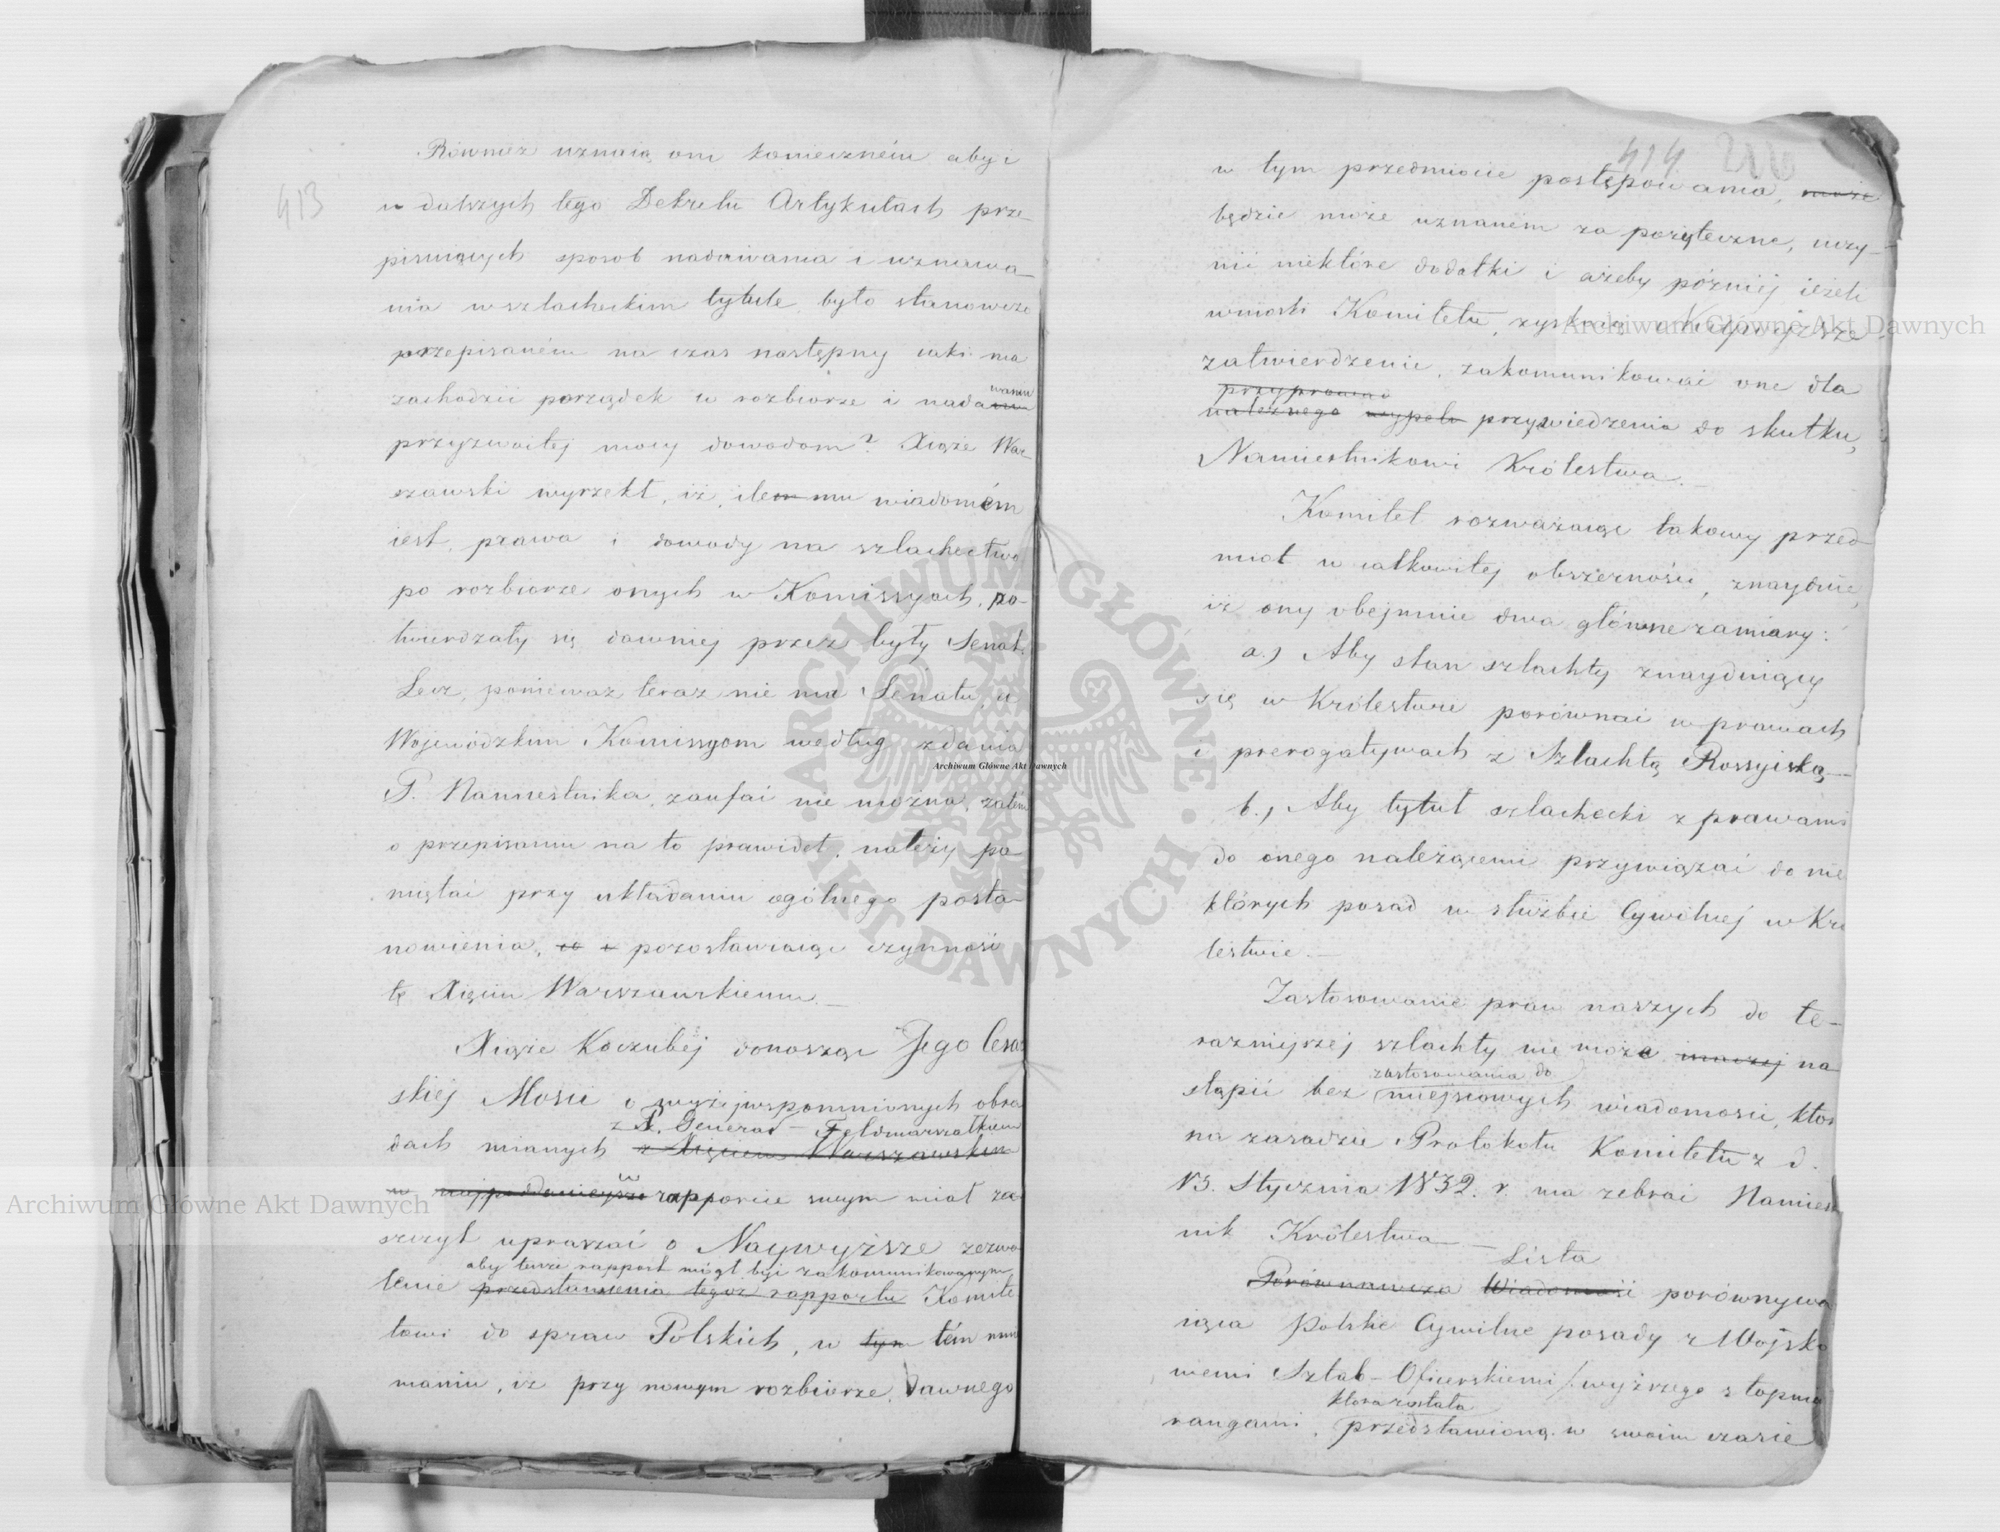 413
Również uznaią oni koniecznem aby i
w dalszych tego Dekretu Artykułach prze-
pisuiących sposob nadawania i uznawa-
nia w szlacheckim tytule, było stanowczo
przepisaném na czas następny iaki ma
zachodzić porządek w rozbiorze i nada
waniu
przyzwoitej mocy dowodom? Xiąże War-
szawski wyrzekł, iż, ile mu wiadomém
iest, prawa i dowody na szlachectwo
po rozbiorze onych w Komissyach, po-
twierdzały się dawniej przez były Senat.
Lecz, ponieważ teraz nie ma Senatu, a
Wojewódzkim Komissyom według zdania
P. Namiestnika, zaufać nie można, zatém
o przepisaniu na to prawideł, należy pa-
miętać przy układaniu ogólnego posta-
nowienia, pozostawiaiąc czynność
tę Xięciu Warszawskiemu.—
Xiąże Koczubéj donosząc Jego Cesar
skiéj Mości o wyżejwspomnionych obra
z P. Generał-Feldmarszałkiem
dach mianych z Xięciem Warszawskim
w
w najpoddanieysze rapporcie swym miał za
szczyt upraszać o Naywyższe zezwo
aby tenże rapport mógł być zakomunikowanym
lenie przedstawienia tegoż rapportu Komite
towi do spraw Polskich, w tym tém mnie
maniu, iż przy nowym rozbiorze, dawnego
414. 216
w tym przedmiocie postępowania, może
będzie może uznaném za pożyteczne, uczy-
nić niektóre dodatki i ażeby późniéj ieżeli
wnioski Komitetu, zyskaią Naywyższe
zatwierdzenie, zakomunikować one dla
przyprowad
należnego wypeł przywiedzenia do skutku,
Namiestnikowi Królestwa.—
Komitet rozważaiąc takowy przed-
miot w całkowitej obszerności, znayduie,
iż ony obejmuie dwa główne zamiary:
a.) Aby stan szlachty znayduiący
się w Królestwie porównać w prawach
i prerogatywach z Szlachtą Rossyiską.—
b.) Aby tytuł szlachecki z prawami
do onego należącemi przywiązać do nie
których posad w służbie Cywilnej w Kró
lestwie.—
Zastosowanie praw naszych do te-
razniejszej szlachty nie może inaczej na
zastosowania do
stąpić bez miejscowych wiadomości, któr
na zasadzie Protokołu Komitetu z d.
13. Stycznia 1832. r. ma zebrać Namiest
nik Królestwa—
Lista
Porównawcza Wiadomość porównywa
iąca Polskie Cywilne posady z Wojsko
wemi Sztab-Oficerskiemi /:wyższego stopnia
która została
rangami, przedstawioną w swoim czasie